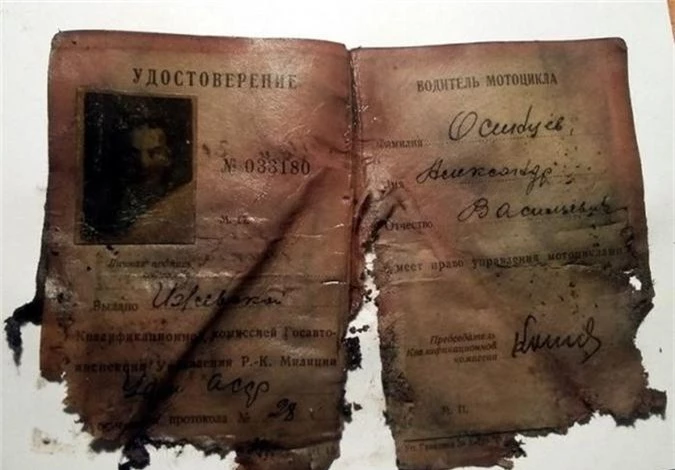 УДОСТОВЕРЕНИЕ
№ 033180
Личная подпись
Выдано Ижевской
Квалификационной комиссией Госавто-
инспекции Управления Р.-К. Милиции
АССР
протокола № 28
ВОДИТЕЛЬ МОТОЦИКЛА
Фамилия
Имя Александр
Васильевич
Отчество
имеет право управления мотоциклами
Председатель
Квалификационной
комиссии